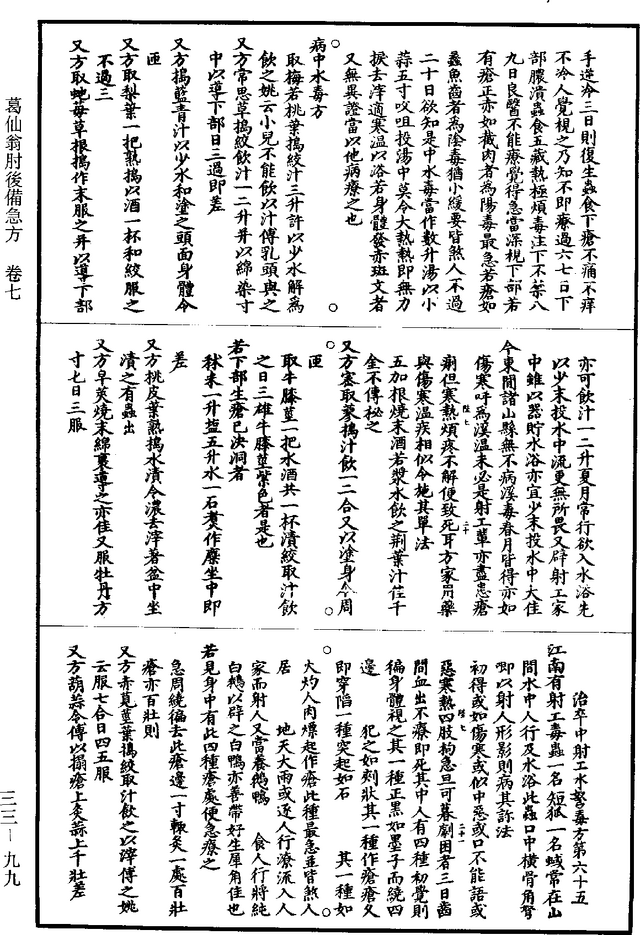 葛仙翁肘後備急方　卷七
手逆冷三日則復生蟲食下瘡不痛不痒
不冷人覺視之乃知不即療過六七日下
部膿潰蟲食五藏熱極煩毒注下不禁八
九日良醫不能療覺得急當深視下部若
有瘡正赤如截肉者為陽毒最急若瘡如
蠡魚齒者為陰毒猶小緩要皆煞人不過
二十日欲知是中水毒當作數升湯以小
蒜五寸㕮咀投湯中莫令大熱熱即無力
捩去滓適寒溫以浴若身體發赤斑文者
又無異證當以他病療之也
病中水毒方
取梅若桃葉搗絞汁三升許以少水解為
飲之姚云小兒不能飲以汁傅乳頭與之
又方常思草搗絞飲汁一二升并以綿染寸
中以導下部日三過即差
又方搗藍青汁以少水和塗之頭面身體令
匝
又方取梨葉一把熟搗以酒一杯和絞服之
不過三
又方取蛇莓草根搗作末服之并以導下部
亦可飲汁一二升夏月常行欲入水浴先
以少末投水中流更無所畏又辟射工家
中雖以器貯水浴亦宜少末投水中大佳
今東間諸山縣無不病溪毒春月皆得亦如
傷寒呼為溪溫未必是射工輩亦盡患瘡
痢但寒熱煩疼不解便致死耳方家用藥
與傷寒溫疾相似令施其單法
五加根燒末酒若漿水飲之荊葉汁佳千
金不傳秘之
又方密取蓼搗汁飲一二合又以塗身令周
匝
取牛膝莖一把水酒共一杯漬絞取汁飲
之日三雄牛膝莖紫色者是也
若下部生瘡已決洞者
秫米一升鹽五升水一石煮作糜坐中即
差
又方桃皮葉熟搗水漬令濃去滓著盆中坐
漬之有蟲出
又方皂莢燒末綿裹導之亦佳又服牡丹方
寸七日三服
治卒中射工水弩毒方第六十五
江南有射工毒蟲一名短狐一名蜮常在山
間水中人行及水浴此蟲口中橫骨角弩
唧以射人形影則病其診法
初得或如傷寒或似中惡或口不能語或
惡寒熱四肢拘急旦可暮劇困者三日齒
間血出不療即死其中人有四種初覺則
徧身體視之其一種正黑如墨子而繞四
邊　犯之如刺狀其一種作瘡瘡久
即穿陷一種突起如石　其一種如
火灼人肉熛起作瘡此種最急並皆煞人
居　地天大雨或逐人行潦流入人
家而射人又當養鵝鴨　食人行將純
白鵝以辟之白鴨亦善帶好生犀角佳也
若見身中有此四種瘡處便急療之
急周繞徧去此瘡邊一寸輒灸一處百壯
瘡亦百壯則
又方赤莧莖葉搗絞取汁飲之以滓傅之姚
云服七合日四五服
又方葫蒜令傅以搨瘡上灸蒜上千壯差
三三—九九